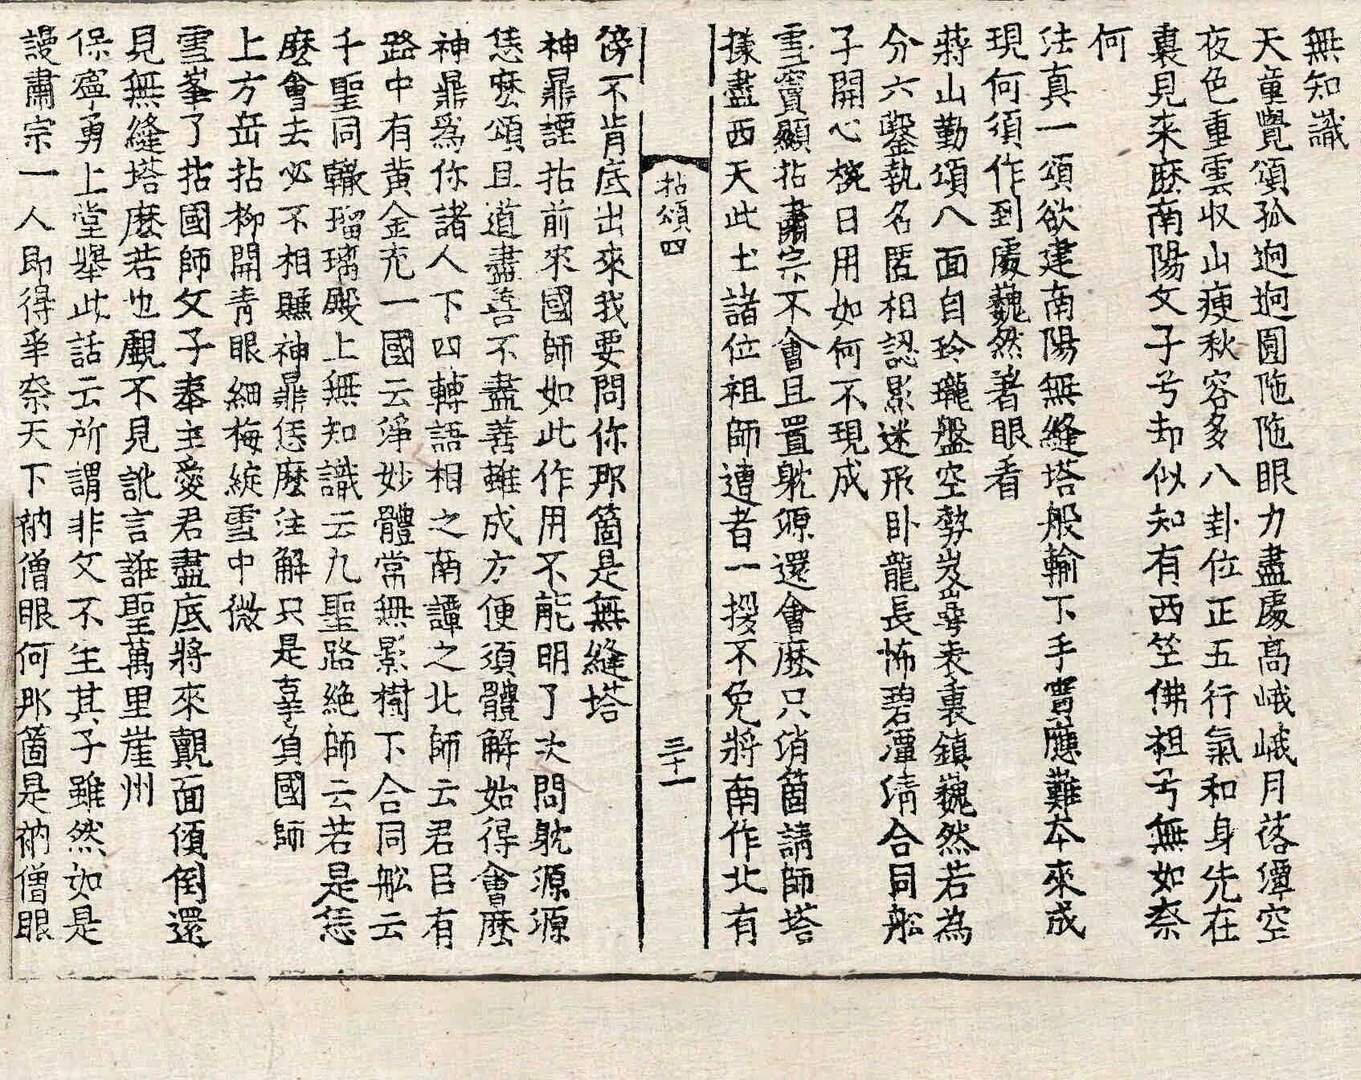 無知識
天童覺頌孤逈逈圓陁陁眼力盡處高峨峨月落潭空
夜色重雲収山瘦秋容多八卦位正五行氣和身先在
裏見来麽南陽父子兮却似知有西竺佛祖兮無如奈
何
法真一頌欲建南陽無縫塔般輸下手實應難本來成
現何須作到處巍然著眼看
蔣山勤頌八面自玲瓏盤空勢岌嶪表裏鎮巍然若為
分六鑿執名匿相認影迷形卧龍長怖碧潭清合同舩
子開心椀日用如何不現成
雪竇顯拈肅宗不會且置躭源還會麽只消箇請師塔
㨾盡西天此土諸位祖師遭者一拶不免將南作北有
拈頌四
三十一
傍不肯底出來我要問你那箇是無縫塔
神鼎諲拈前來國師如此作用不能明了次問躭源源
恁麽頌且道盡善不盡善雖成方便須體解始得會麽
神鼎爲你諸人下四轉語相之南譚之北師云君臣有
路中有黃金充一國云淨妙體常無影樹下合同舩云
千聖同轍瑠璃殿上無知識云九聖路絶師云若是恁
麽會去必不相賺神鼎恁麽注解只是辜負國師
上方岳拈柳開青眼細梅綻雪中微
雪峯了拈國師父子奉主愛君盡底將來覿面傾倒還
見無縫塔麽若也覷不見訛言誰聖萬里崖州
保寧勇上堂舉此話云所謂非父不生其子雖然如是
謾肅宗一人即得爭奈天下衲僧眼何那箇是衲僧眼